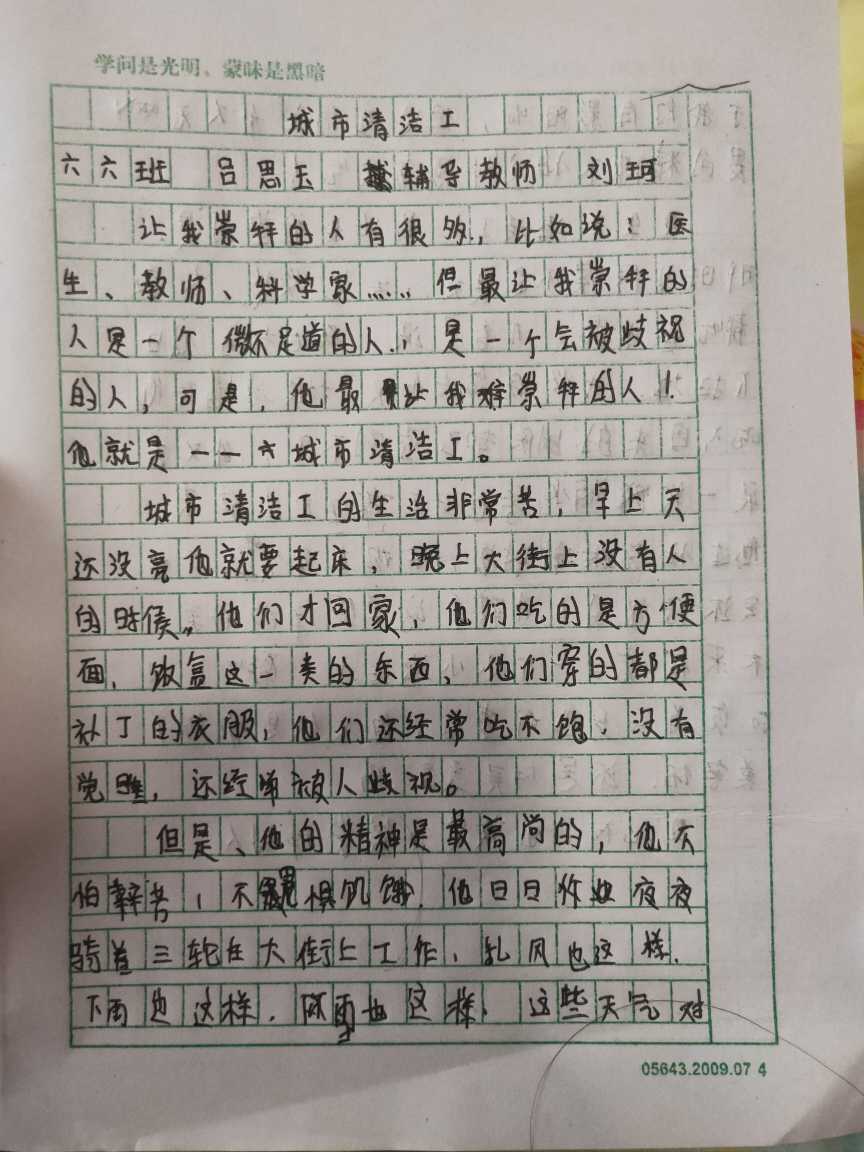 学问是光明、蒙昧是黑暗
城市清洁工
六六班 吕思玉 辅导教师 刘珂
让我崇拜的人有很多，比如说：医
生、教师、科学家……但最让我崇拜的
人是一个微不足道的人，是一个会被歧视
的人，可是，他最让我崇拜的人！
他就是——城市清洁工。
城市清洁工的生活非常苦，早上天
还没亮他就要起床，晚上大街上没有人
的时候，他们才回家，他们吃的是方便
面、饭盒这一类的东西，他们穿的都是
补丁的衣服，他们还经常吃不饱，没有
觉睡，还经常被人歧视。
但是、他的精神是最高尚的，他不
怕辛苦，不惧饥饿，他日日作业夜夜
骑着三轮在大街上工作，扎风也这样，
下雨也这样，也这样，这些天气对
05643.2009.07 4